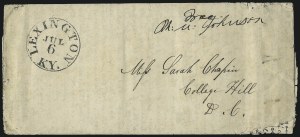 LEXINGTON
JUL
6
KY.
Free
M. Johnson
Miss Sarah Chapin
College Hill
D. C.